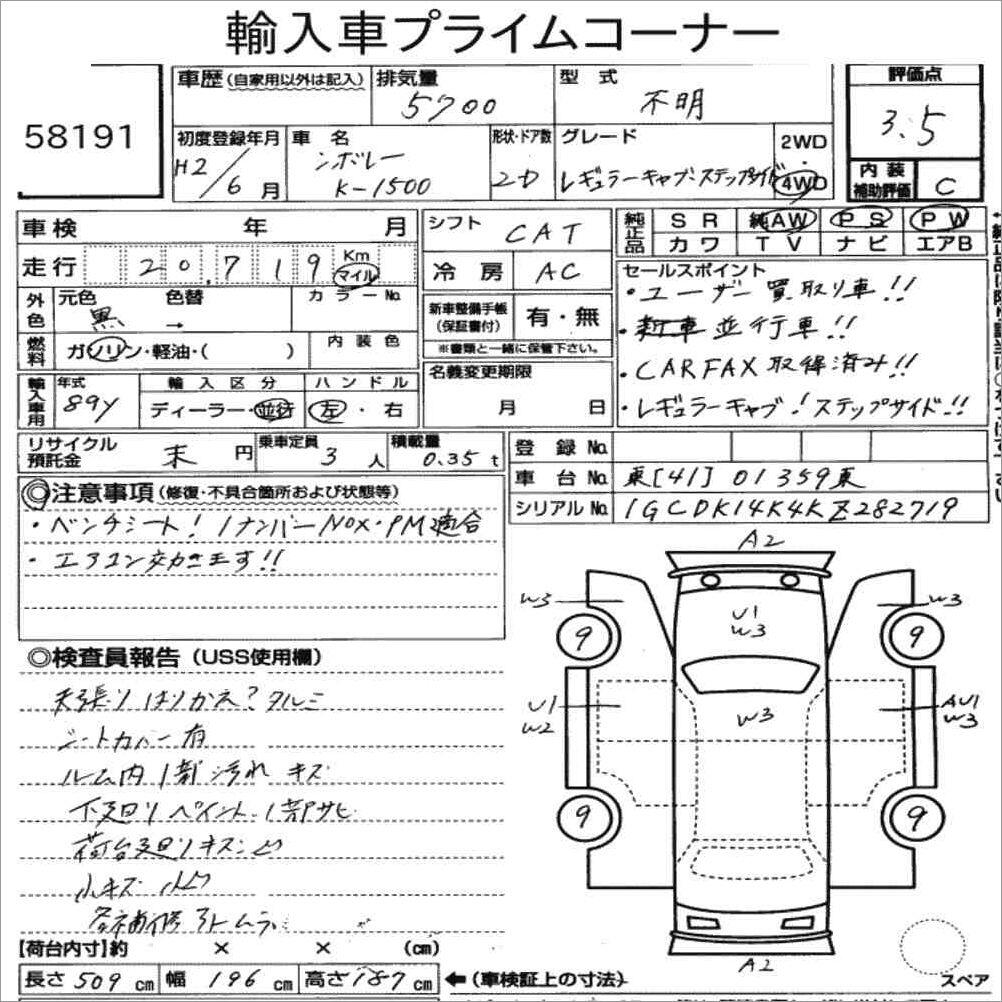 輸入車プライムコーナー
58191
車歴(自家用以外は記入)
排気量 5700
型式 不明
評価点 3.5
初度登録年月 H2/6月
車名 シボレー K-1500
形状・ドア数 2D
グレード レギュラーキャブ・ステップサイド
2WD
4WD
内装補助評価 C
車検 年 月
走行 20,719 Km マイル
シフト CAT
冷房 AC
純正品 SR 純AW PS PW
カワ TV ナビ エアB
外色 元色 黒 色替 → カラーNo.
燃料 ガソリン・軽油・( ) 内装色
新車整備手帳(保証書付) 有・無
※書類と一緒に保管下さい。
セールスポイント
・ユーザー買取り車!!
・新車並行車!!
・CARFAX取得済み!!
・レギュラーキャブ!ステップサイド!!
輸入車用 年式 89y
輸入区分 ディーラー・並行
ハンドル 左・右
名義変更期限 月 日
リサイクル預託金 未 円
乗車定員 3人
積載量 0.35t
登録No.
車台No. 東[41]01359東
シリアルNo. 1GCDK14K4KZ282719
◎注意事項(修復・不具合箇所および状態等)
・ベンチシート!1ナンバーNOX・PM適合
・エアコン効きます!!
◎検査員報告(USS使用欄)
天張りはりかえ?タルミ
シートカバー有
ルーム内1部汚れ キズ
下廻りペイント、1部サビ
荷台廻りキズ凹
小キズ 小凹
A2
W3
W3
U1
W3
9
9
U1
W2
W3
AU1
W3
9
9
A2
スペア
【荷台内寸】約 × × (cm)
長さ 509cm 幅 196cm 高さ 187cm ←(車検証上の寸法)